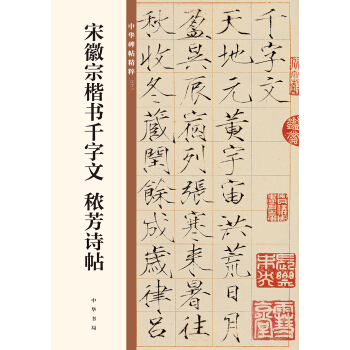 宋徽宗楷书千字文 秾芳诗帖
中华书局
中华碑帖精粹
千字文
天地元黃宇宙洪荒日月
盈昃辰宿列張寒來暑往
秋收冬藏閏餘成歲律呂